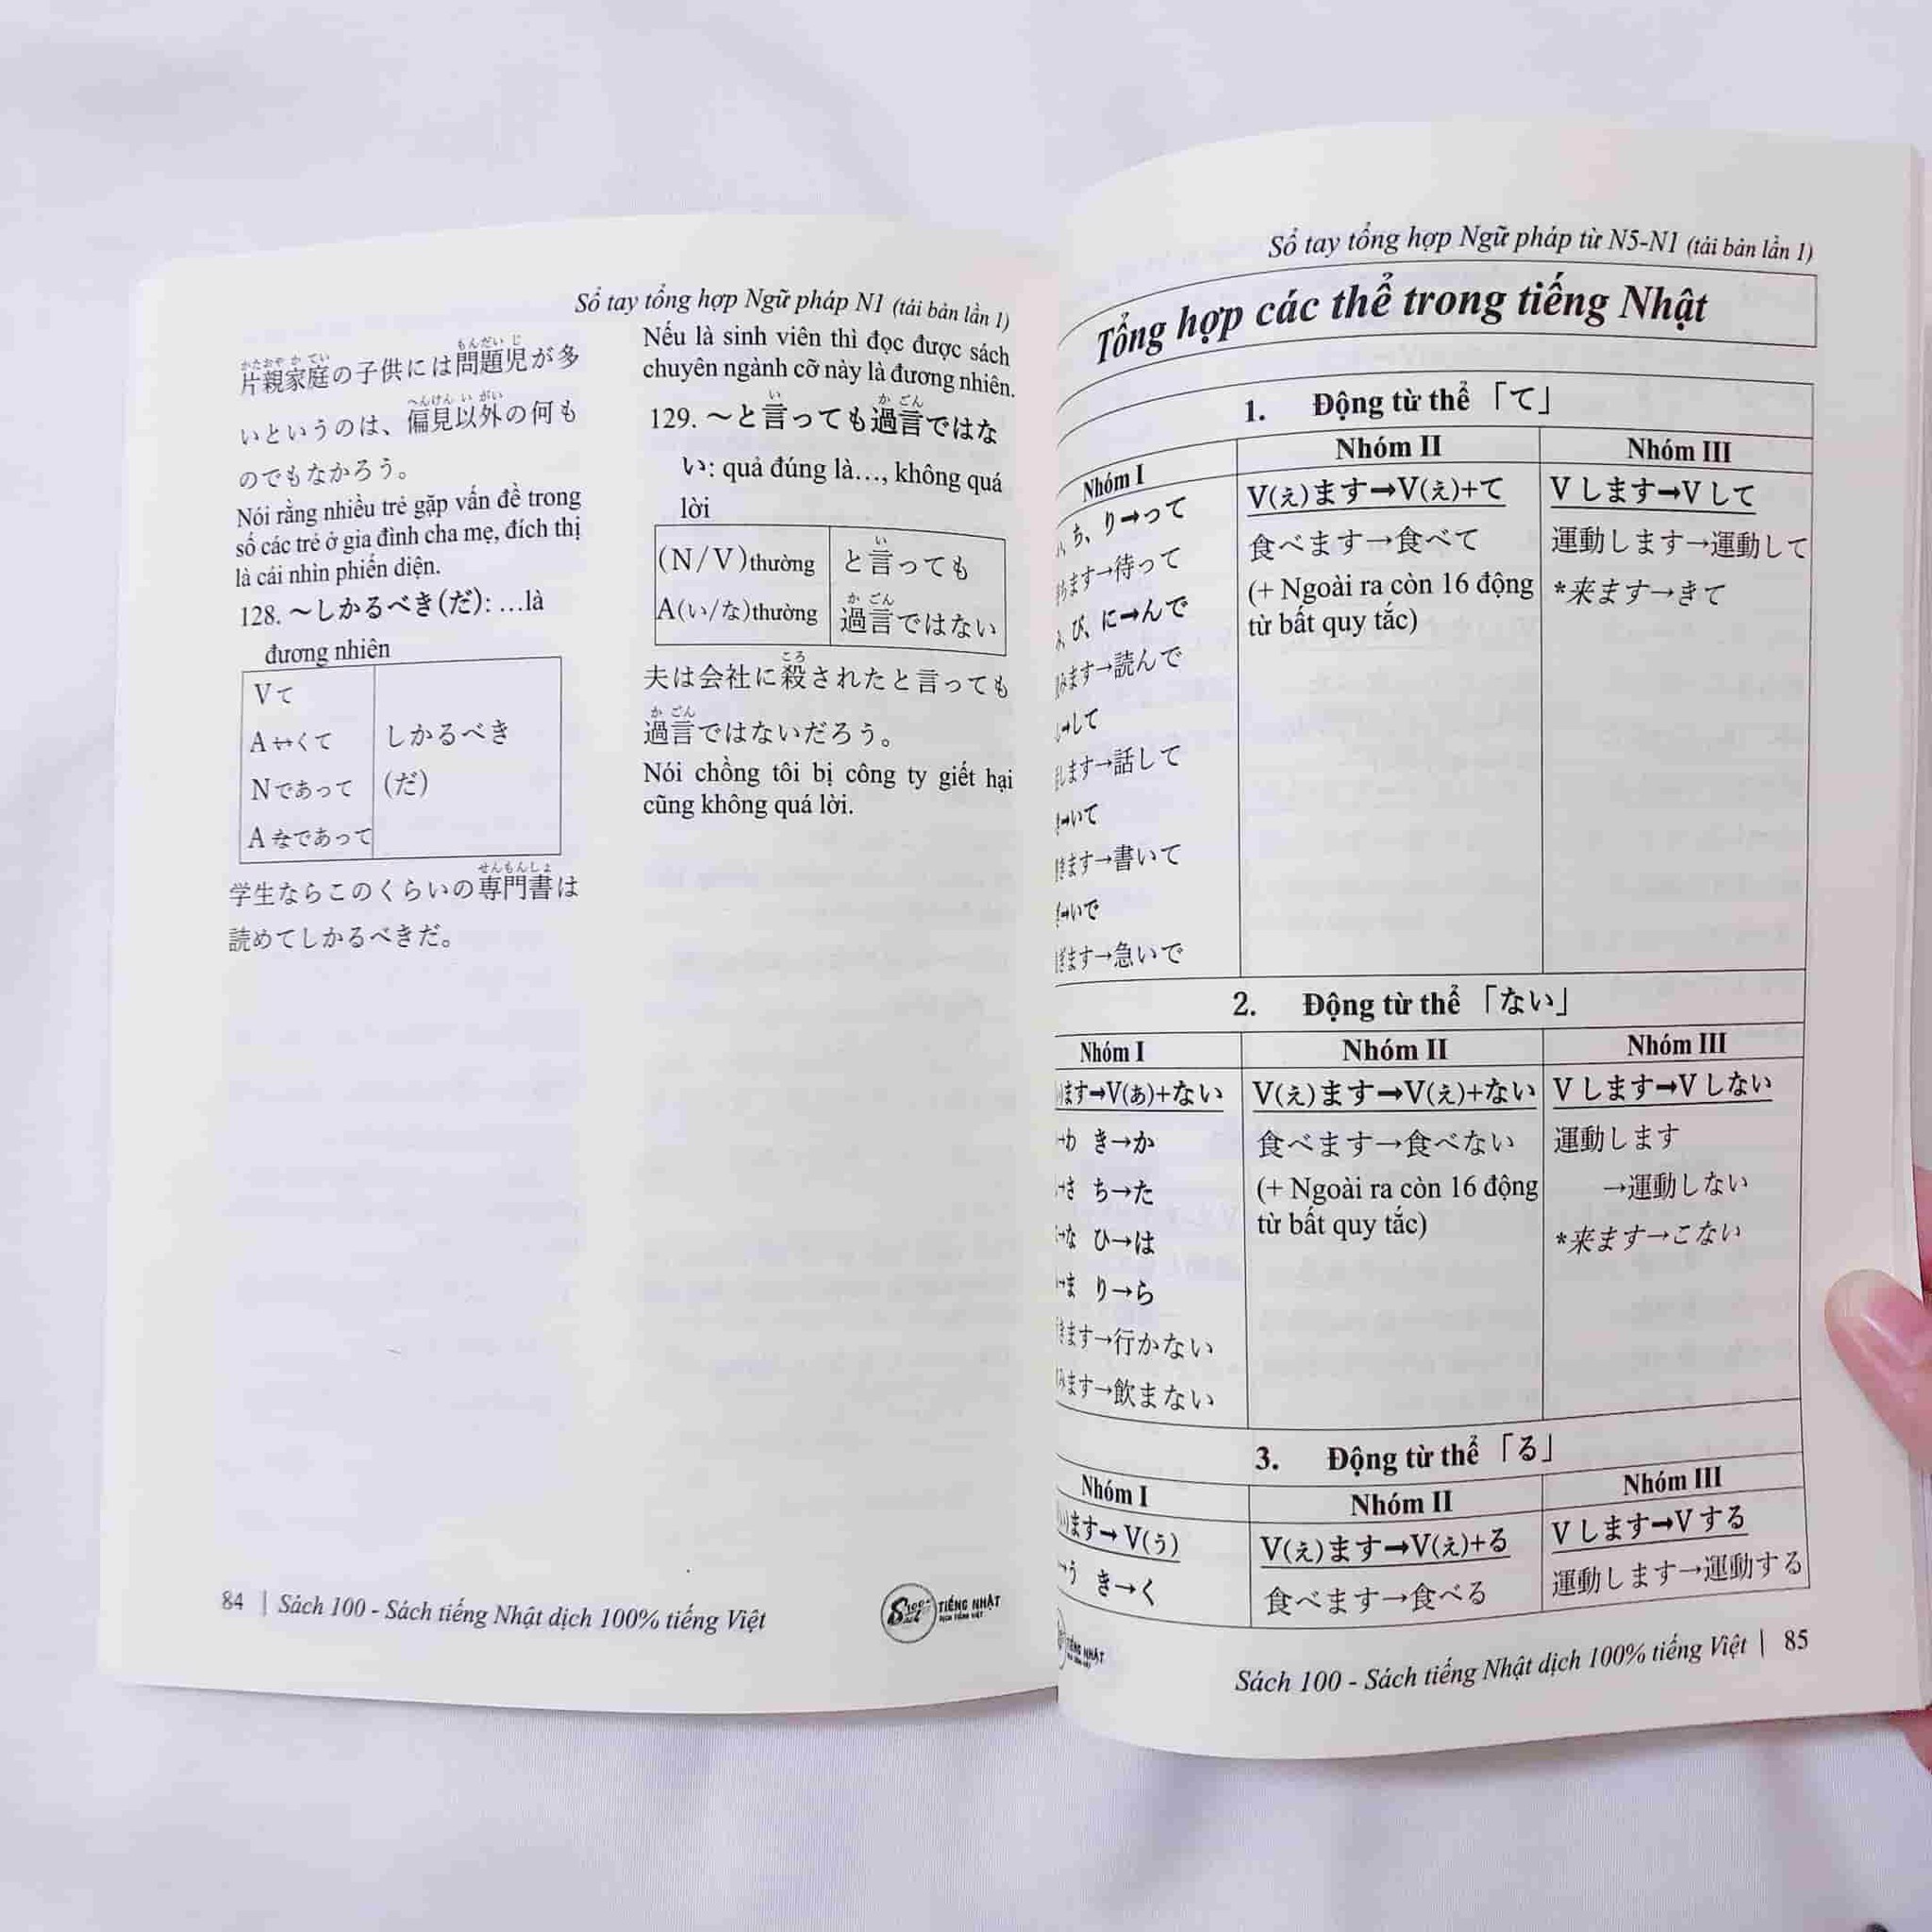 Sổ tay tổng hợp Ngữ pháp N1 (tải bản lần 1)
かたおやかてい もんだいじ
片親家庭の子供には問題児が多
へんけんいがい
いというのは、偏見以外の何も
のでもなかろう。
Nói rằng nhiều trẻ gặp vấn đề trong
số các trẻ ở gia đình cha mẹ, đích thị
là cái nhìn phiến diện.
128. ～しかるべき(だ): …là
đương nhiên
Vて
Aいくて
Nであって
Aなであって
しかるべき
(だ)
せんもんしょ
学生ならこのくらいの専門書は
読めてしかるべきだ。
Nếu là sinh viên thì đọc được sách
chuyên ngành cỡ này là đương nhiên.
い か ごん
129. ～と言っても過言ではな
い: quả đúng là…, không quá
lời
(N/V)thường
A(い/な)thường
い
と言っても
か ごん
過言ではない
ころ
夫は会社に殺されたと言っても
か ごん
過言ではないだろう。
Nói chồng tôi bị công ty giết hại
cũng không quá lời.
84 | Sách 100 - Sách tiếng Nhật dịch 100% tiếng Việt
TIẾNG NHẬT
DỊCH TIẾNG VIỆT
Sổ tay tổng hợp Ngữ pháp từ N5-N1 (tải bản lần 1)
Tổng hợp các thể trong tiếng Nhật
1. Động từ thể「て」
Nhóm I
ち、り→って
ます→待って
び、に→んで
みます→読んで
→して
します→話して
→いて
きます→書いて
→いで
ぎます→急いで
Nhóm II
V(え)ます→V(え)+て
食べます→食べて
(+ Ngoài ra còn 16 động
từ bất quy tắc)
Nhóm III
Vします→Vして
運動します→運動して
*来ます→きて
2. Động từ thể「ない」
Nhóm I
ます→V(あ)+ない
→わ き→か
→さ ち→た
→な ひ→は
→ま り→ら
きます→行かない
みます→飲まない
Nhóm II
V(え)ます→V(え)+ない
食べます→食べない
(+ Ngoài ra còn 16 động
từ bất quy tắc)
Nhóm III
Vします→Vしない
運動します
→運動しない
*来ます→こない
3. Động từ thể「る」
Nhóm I
ます→V(う)
→う き→く
Nhóm II
V(え)ます→V(え)+る
食べます→食べる
Nhóm III
Vします→Vする
運動します→運動する
TIẾNG NHẬT
Sách 100 - Sách tiếng Nhật dịch 100% tiếng Việt | 85